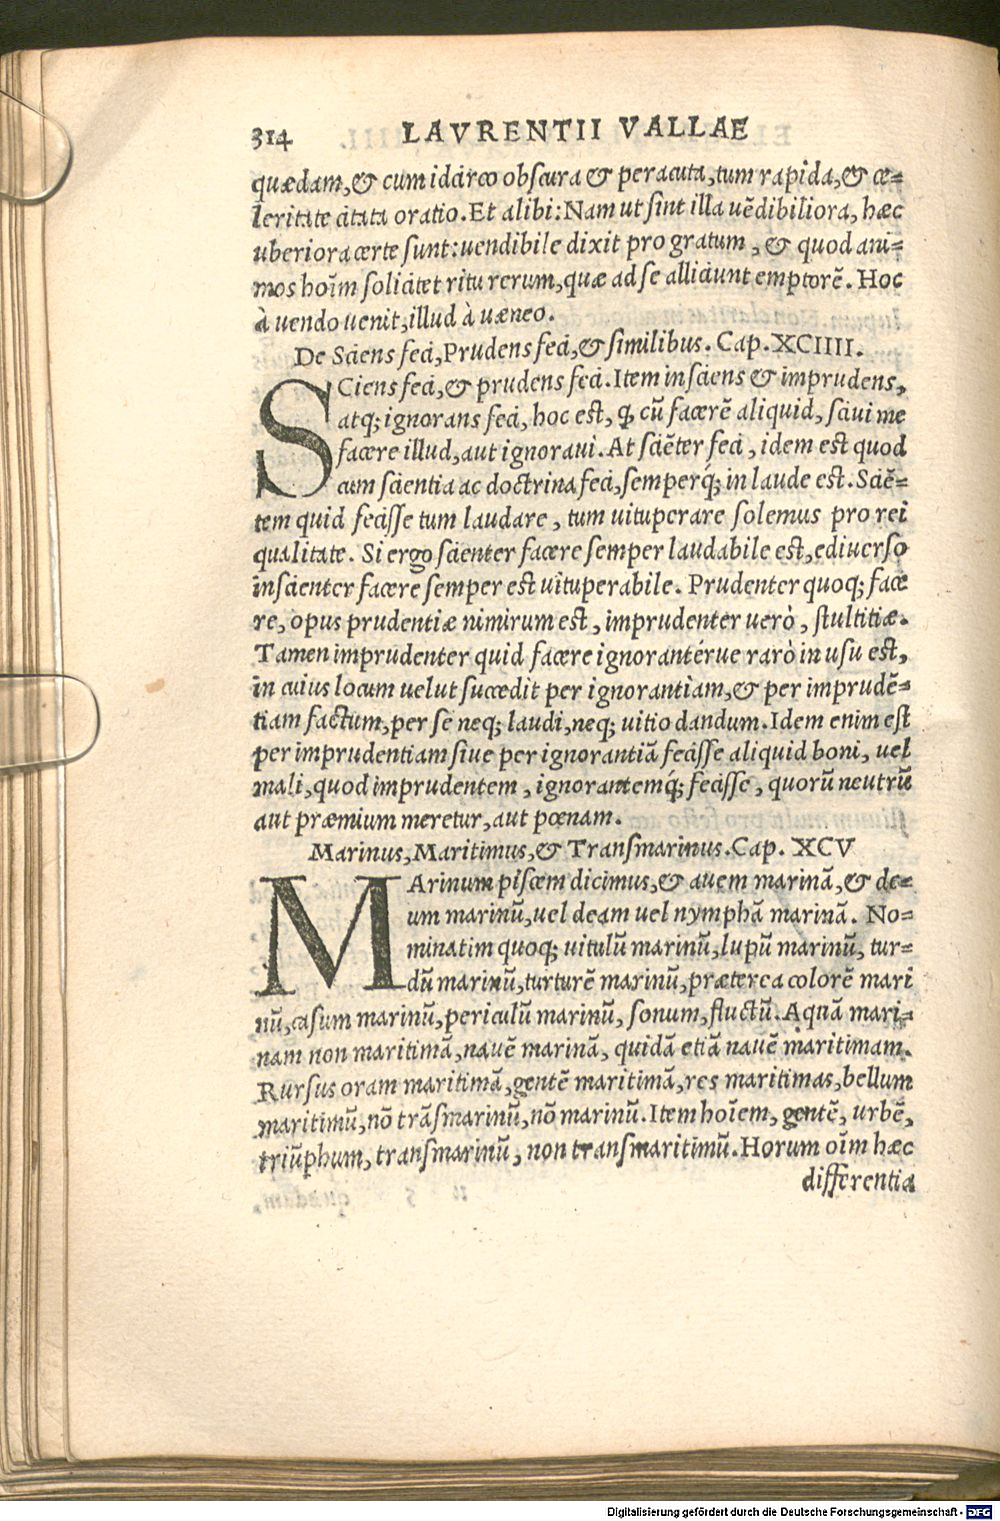 314 LAVRENTII VALLAE
quædam, & cum idcirco obscura & peracuta, tum rapida, & ce-
leritate citata oratio. Et alibi: Nam ut sint illa uēdibiliora, hæc
uberiora certe sunt: uendibile dixit pro gratum, & quod ani-
mos hoīm solicitet ritu rerum, quæ ad se alliciunt emptorē. Hoc
à uendo uenit, illud à uæneo.
De Sciens feci, Prudens feci, & similibus. Cap. XCIIII.
SCiens feci, & prudens feci. Item insciens & imprudens,
atq; ignorans feci, hoc est, ꝙ cū facerē aliquid, sciui me
facere illud, aut ignoraui. At sciēter feci, idem est quod
cum scientia ac doctrina feci, semperq́; in laude est. Sciē-
tem quid fecisse tum laudare, tum uituperare solemus pro rei
qualitate. Si ergo scienter facere semper laudabile est, ediuerso
inscienter facere semper est uituperabile. Prudenter quoq; face
re, opus prudentiæ nimirum est, imprudenter uerò, stultitiæ.
Tamen imprudenter quid facere ignorantérue rarò in usu est,
in cuius locum uelut succedit per ignorantiam, & per imprudē-
tiam factum, per se neq; laudi, neq; uitio dandum. Idem enim est
per imprudentiam siue per ignorantiā fecisse aliquid boni, uel
mali, quod imprudentem, ignorantemq́; fecisse, quorū neutrū
aut præmium meretur, aut pœnam.
Marinus, Maritimus, & Transmarinus. Cap. XCV
MArinum piscem dicimus, & auem marinā, & de-
um marinū, uel deam uel nymphā marinā. No-
minatim quoq; uitulū marinū, lupū marinū, tur-
dū marinū, turturē marinū, præterea colorē mari
nū, casum marinū, periculū marinū, sonum, fluctū. Aquā mari-
nam non maritimā, nauē marinā, quidā etiā nauē maritimam.
Rursus oram maritimā, gentē maritimā, res maritimas, bellum
maritimū, nō trāsmarinū, nō marinū. Item hoīem, gentē, urbē,
triūphum, transmarinū, non transmaritimū. Horum oīm hæc
differentia
Digitalisierung gefördert durch die Deutsche Forschungsgemeinschaft - DFG